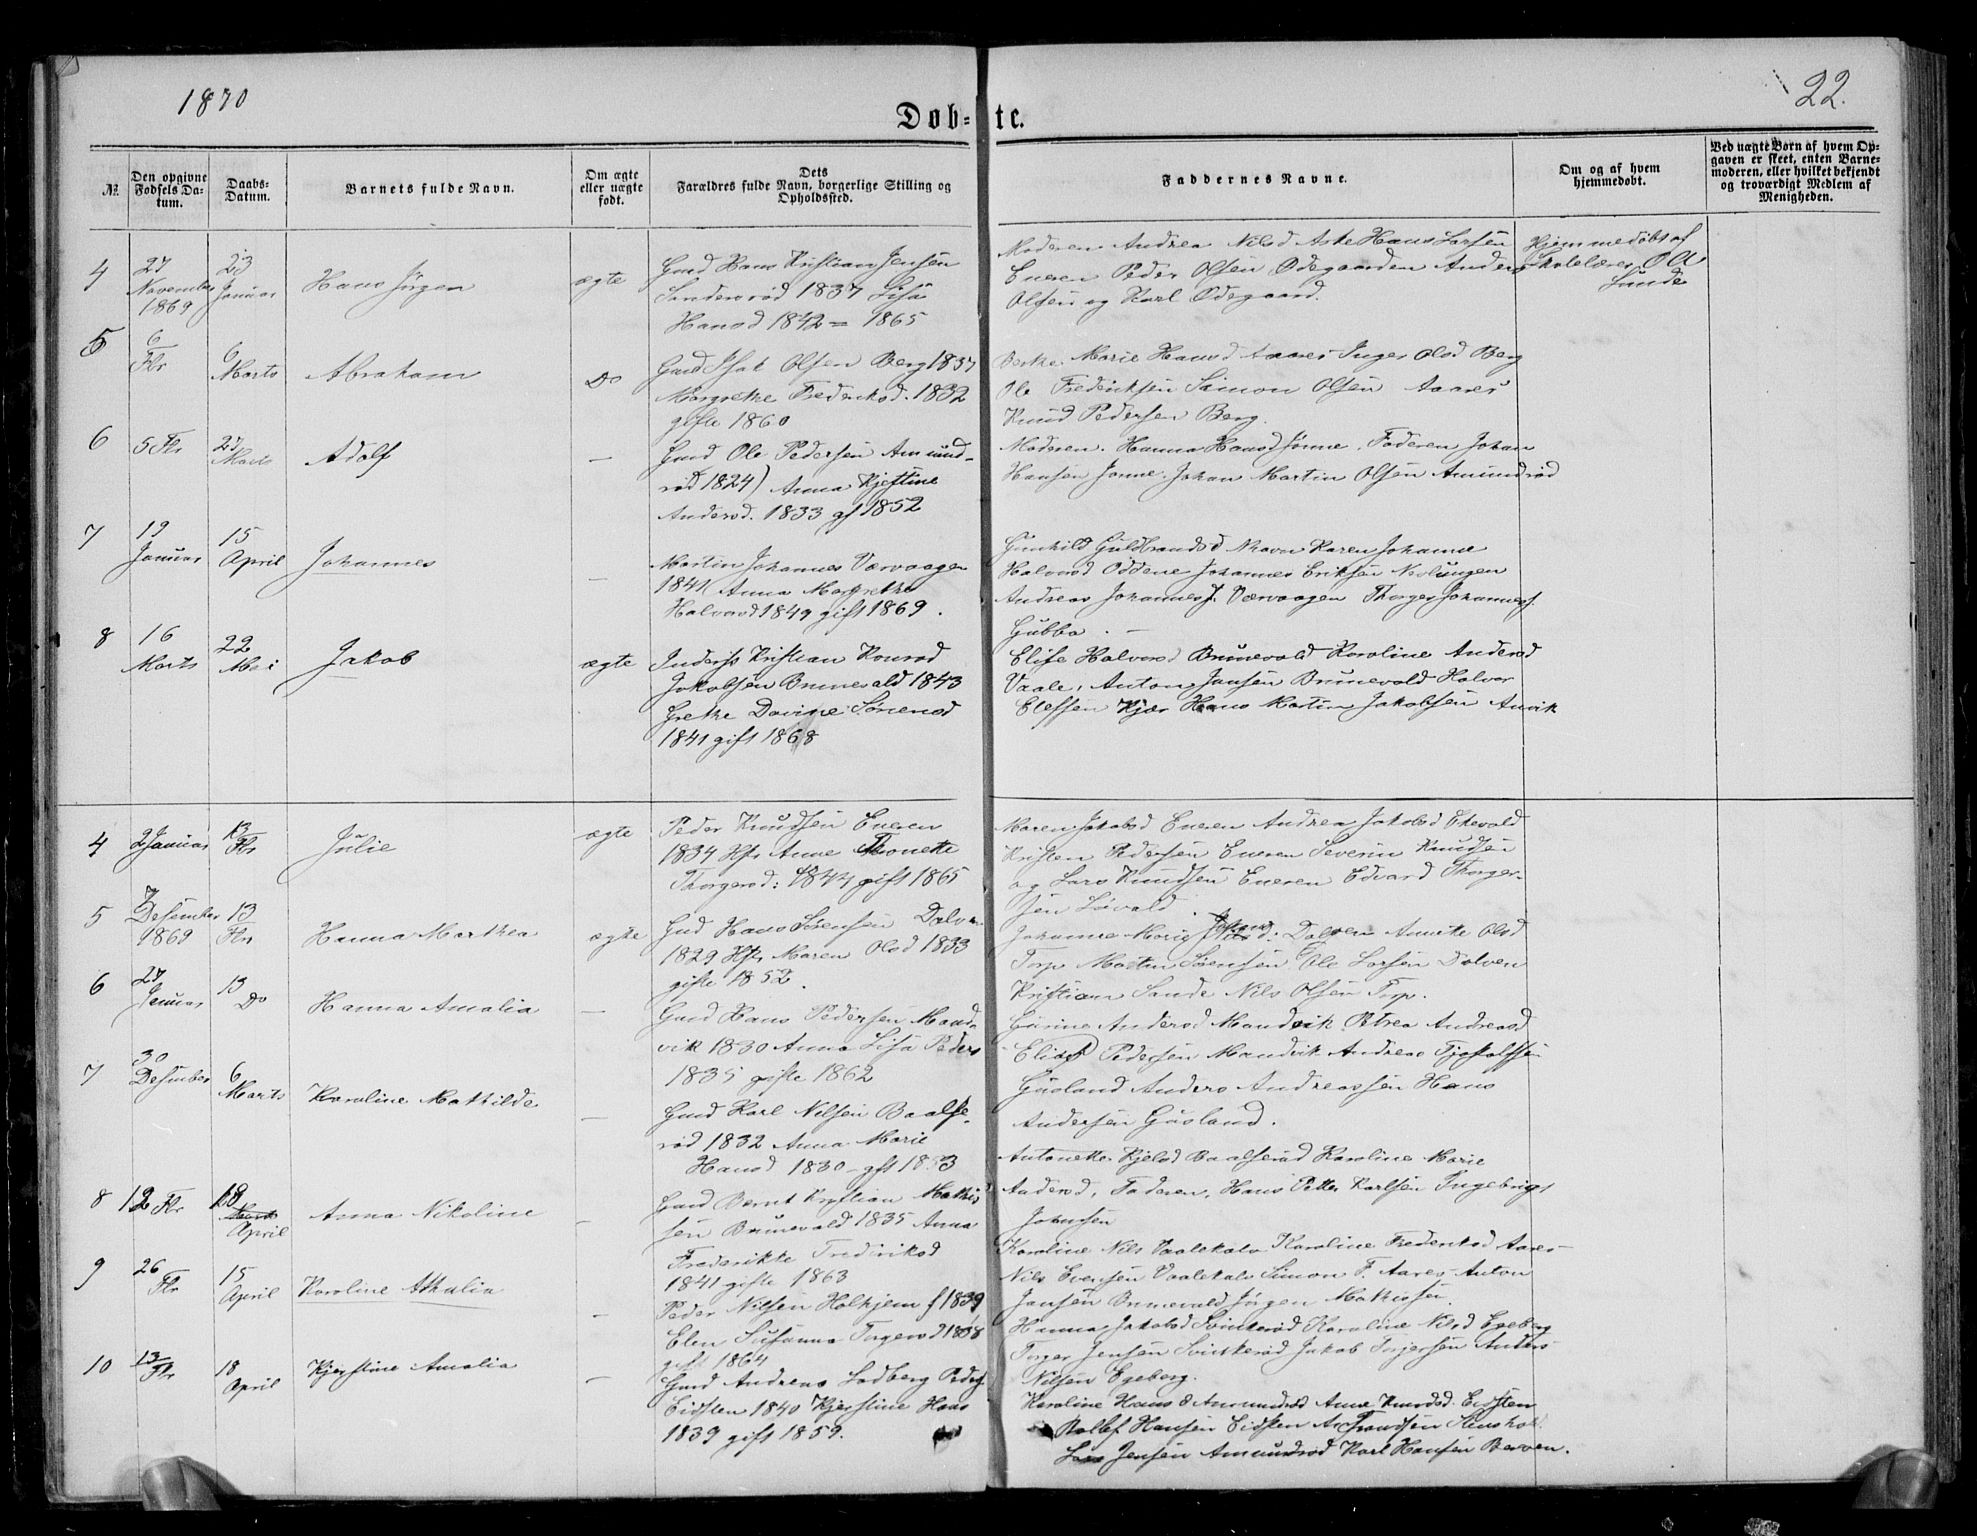 1870
22.
Døb-te.
№.
Den opgivne Fødsels Datum.
Daabs-Datum.
Barnets fulde Navn.
Om ægte eller uægte født.
Dets Forældres fulde Navn, borgerlige Stilling og Opholdssted.
Faddernes Navne.
Om og af hvem hjemmedøbt.
Ved uægte Børn af hvem Opgaven er skeet, enten Barnemoderen, eller hvilket bekjendt og troværdigt Medlem af Menigheden.
4
27 November 1869
23 Januar
Hans Jørgen
ægte
Gmd Hans Kristian Jensen
Sandersrød 1837 Lisa
Hansd 1842 = 1865
Moderen Andrea Nilsd Aske Hans Larsen
Eneren Peder Olsen Ødegaarden Anders
Olsen og Karl Ødegaard.
Hjemmedøbt af
Skolelærer O A
Sunde
5
6 Fbr
6 Marts
Abraham
Do
Gmd Isak Olsen Berg 1837
Margrethe Frederiksd. 1832
gifte 1860
Marie Hansd Aarøe Inger Olsd Berg
Ole Frederiksen Simon Olsen Aarøe
Knud Pedersen Berg.
6
5 Fbr
27 Marts
Adolf
—
Gmd Ole Pedersen Amund-
rød 1824) Anna Kjestine
Andersd. 1833 gf 1852
Moderen. Hanna Hansd Jonne. Faderen Johan
Hansen Jonne. Johan Martin Olsen Amundrød
7
19 Januar
15 April
Johannes
—
Martin Johannes Værvaagen
1841 Anna Margrethe
Halvorsd 1849 gift 1869.
Gunhild Guldbrandsd Nhavn Karen Johanne
Halvorsd Oddene Johannes Eriksen Nevlungen
Andreas Johanness. Værvaagen Thorger Johanness.
Gubba. —
8
16 Marts
22 Mai
Jakob
ægte
Inderss Kristian Konrad
Jakobsen Brunevald 1843
Grethe Davine Sørensd
1841 gift 1868
Elise Halvorsd Brunevald Karoline Andersd
Vaale, Anton Jansen Brunevald Halvor
Elefsen Kjær Hans Martin Jakobsen Anvik
4
2 Januar
13 Fbr
Julie
ægte
Peder Knudsen Eneren
1834 Hfr Anne Thonette
Thorgersd: 1844 gift 1865
Maren Jakobsd Eneren Andrea Jakobsd Ekevald
Kristen Pedersen Eneren Severin Knudsen
og Lars Knudsen Eneren Edvard Thorger-
sen Løvald.
5
7 Desember 1869
13 Fbr
Hanna Marthea
ægte
Gmd Hans Sørensen Dolven
1829 Hfr Maren Olsd 1833
gifte 1852.
Johanne Marie Johansd. Dolven Annette Olsd
Torp Martin Sørensen Ole Larsen Dolven
Kristian Sande Nils Olsen Torp.
6
27 Januar
13 Do
Hanna Amalia
—
Gmd Hans Pedersen Mand-
vik 1830 Anna Lisa Peders
1835 gifte 1862
Gurine Andersd Mandvik Petrea Andreasd
Elias Pedersen Mandvik Andreas Tjostolfsen
Gusland Anders Andreassen Hans
Andersen Gusland.
7
30 Desember
6 Marts
Karoline Mathilde
—
Gmd Karl Nilsen Baalse-
rød 1832 Anna Marie
Hansd 1830 - gft 1853
Antonette Kjelsd Baalserød Karoline Marie
Andersd. Faderen. Hans Petter Karlsen Ingebrigt
Johnsen
8
12 Fbr
18 April
Anna Nikoline
—
Gmd Bernt Kristian Mathis
sen Brunevald 1835 Anna
Frederikke Frederiksd
1841 gifte 1863
Karoline Nils Vaalekalv Karoline Frederiksd Aarøe
Nils Evensen Vaalekalv Simon F. Aarøe Anton
Jansen Brunevald Jørgen Mathissen
9
26 Fbr
15 April
Karoline Athalia
—
Peder Nilsen Holhjem f 1839
Elen Susanna Torgersd 1838
gift 1864
Hanna Jakobsd Svinkerød Karoline Nilsd Egeberg
Torger Jensen Svinkerød Jakob Torjersen Anders
Nilsen Egeberg.
10
13 Fbr
18 April
Kjerstine Amalia
—
Gmd Andreas Lodberg Peders
Eidsten 1840 Kjerstine Hans
1839 gift 1859.
Karoline Hansd Amundrød Anne Knudsd. Eidsten
Rollef Hansen Eidsten
Lars Jensen Amundrød Karl Hansen Berven.